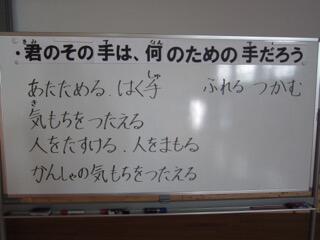 ・君のその手は、何のための手だろう
あたためる．はく手　ふれる つかむ
気もちをつたえる
人をたすける．人をまもる
かんしゃの気もちをつたえる